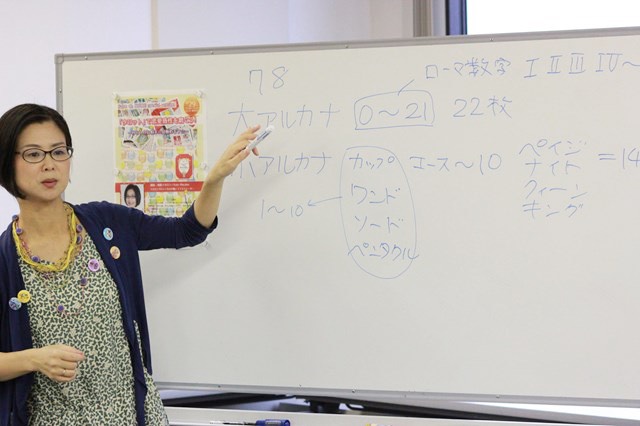 ローマ数字 I II III IV〜
78
大アルカナ 0〜21 22枚
アルカナ カップ エース〜10 ペイジ =14
ナイト
1〜10 ワンド クィーン
ソード キング
ペンタクル